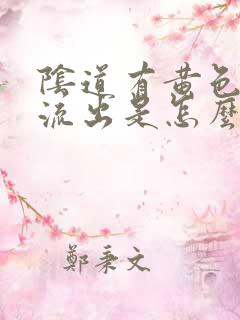 陰道有黃色
流出是怎麼
鄭秉文